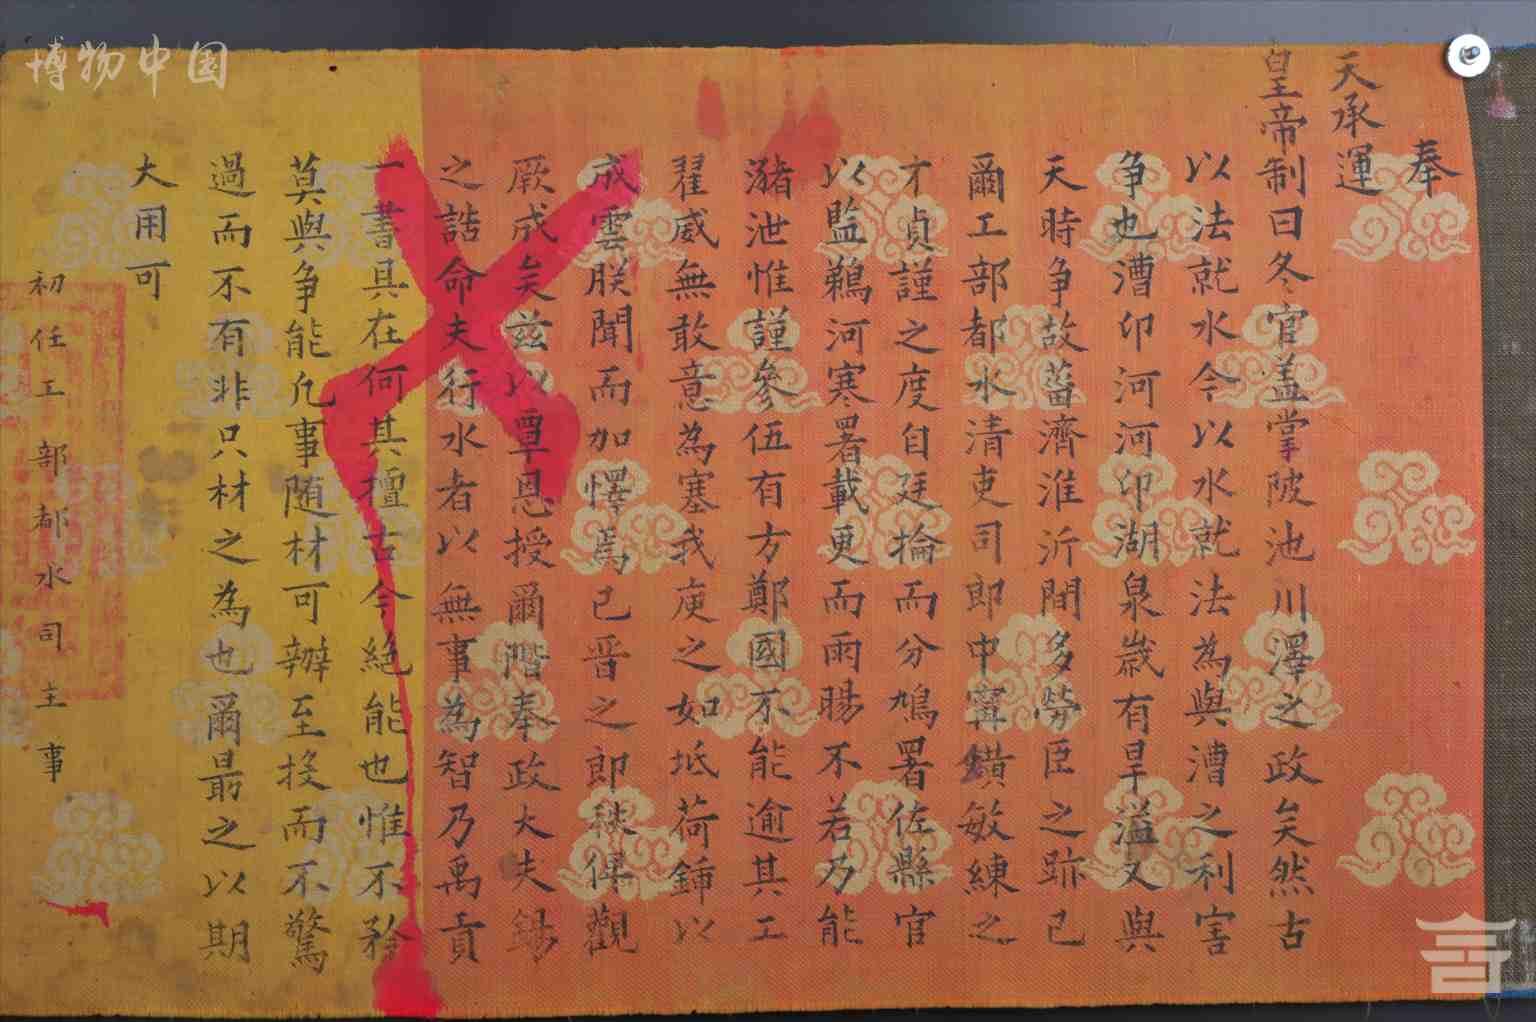 博物中国
奉
天承運
皇帝制曰冬官盖掌陂池川澤之政矣然古
以法就水今以水就法為與漕之利害
争也漕卬河河卬湖泉歲有旱溢又與
天時争故蓄濟淮沂間多勞臣之跡已
爾工部都水清吏司郎中甯鐄敏練之
才貞謹之度自廷掄而分鳩署佐縣官
以監鵜河寒署載更而雨暘不若乃能
瀦泄惟謹參伍有方鄭國不能逾其工
翟威無敢意為塞我庾之如坻荷鍤以
成雲朕聞而加懌焉已晋之郎秩俾觀
厥成矣兹以覃恩授爾階奉政大夫錫
之誥命夫行水者以無事為智乃禹貢
一書具在何其擅古今絶能也惟不矜
莫與争能凢事随材可辦至投而不驚
過而不有非只材之為也爾最之以期
大用可
初任工部都水司主事